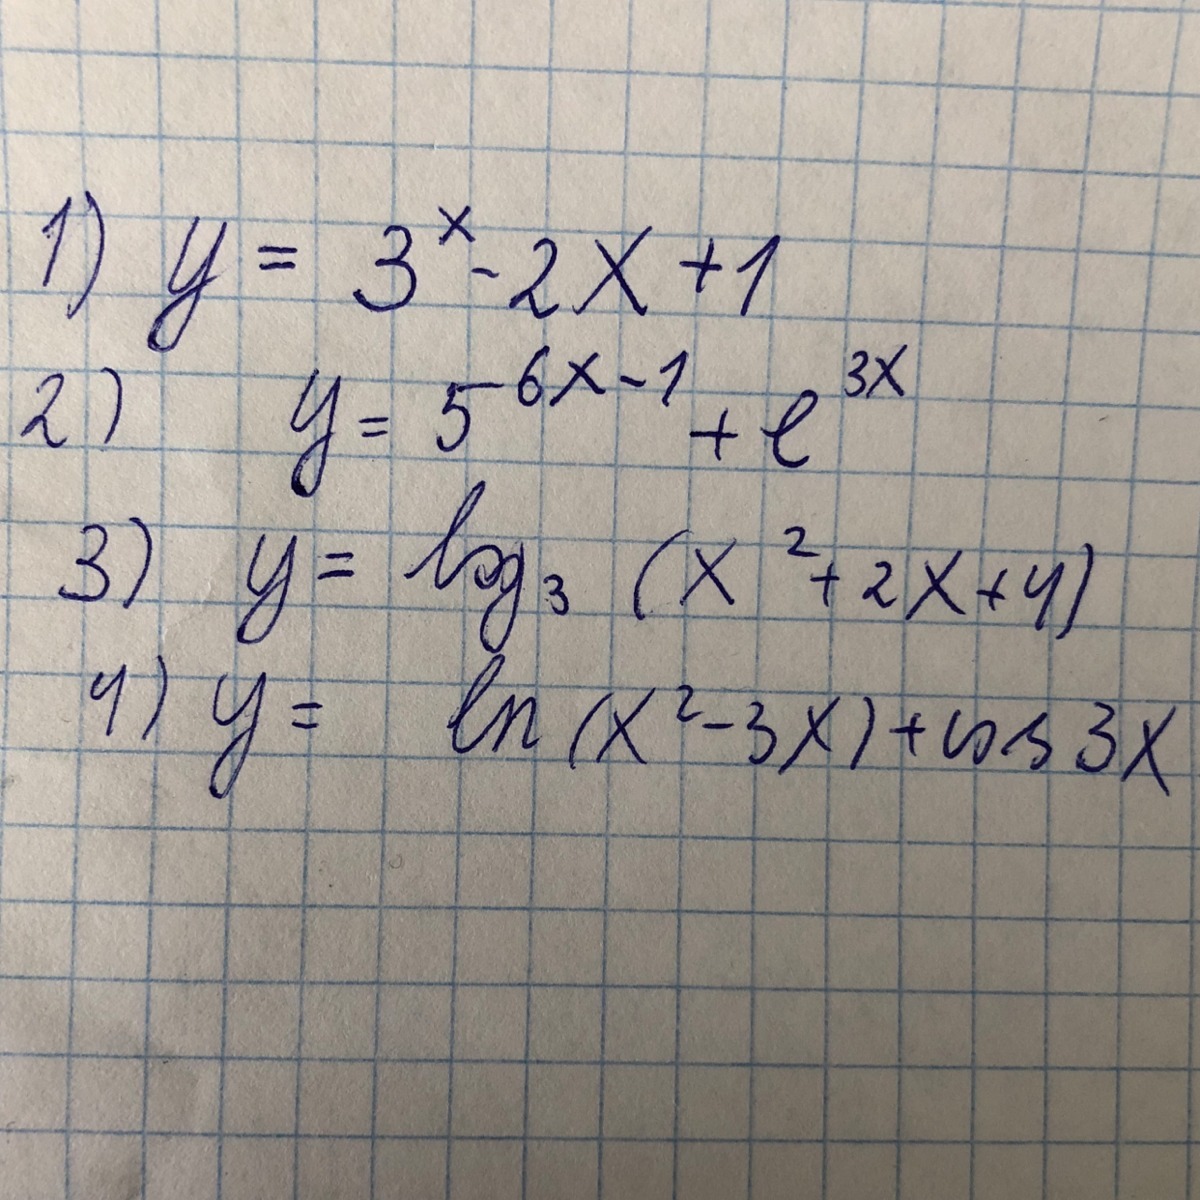 1) y = 3^x - 2x + 1
2) y = 5^{6x-1} + e^{3x}
3) y = log_3 (x^2 + 2x + 4)
4) y = ln (x^2 - 3x) + cos 3x